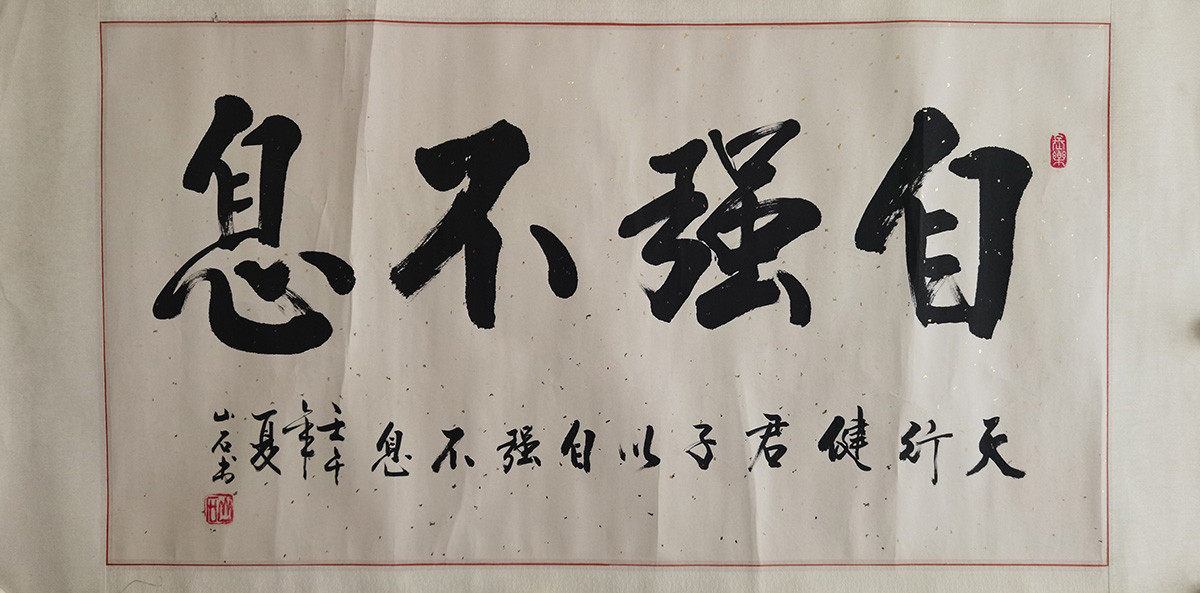 自强不息
天行健君子以自强不息
壬午年夏
山石书